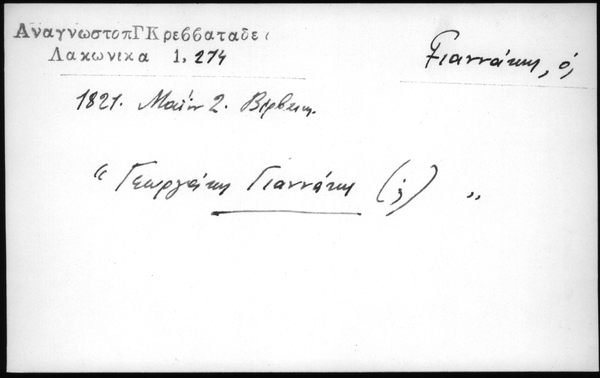 ΑναγνωστοπΓΚρεββαταδε
Λακωνικα 1, 274
Γιαννάκης, ὁ,
1821. Μαΐου 2. Βέρβαινα.
“ Γεωργάκης Γιαννάκης (ὁ) ”